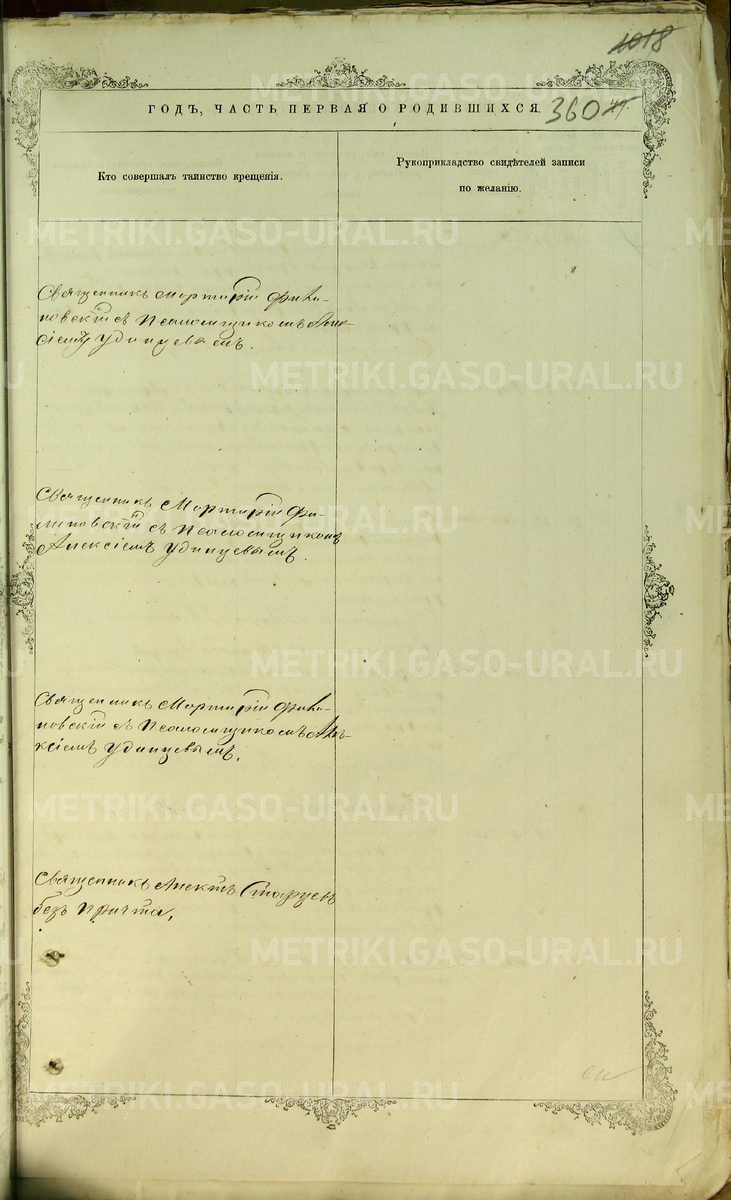 1018
ГОДЪ, ЧАСТЬ ПЕРВАЯ О РОДИВШИХСЯ.
360
Кто совершалъ таинство крещенія.
Рукоприкладство свидѣтелей записи
по желанію.
Священникъ Мартирій Фили-
повскій съ Псаломщикомъ Алек-
сіемъ Удинцевымъ.
Священникъ Мартирій Фи-
липовскій съ Псаломщикомъ
Алексіемъ Удинцевымъ.
Священникъ Мартирій Фили-
повскій съ Псаломщикомъ Але-
ксіемъ Удинцевымъ.
Священникъ
безъ Причта.
METRIKI.GASO-URAL.RU